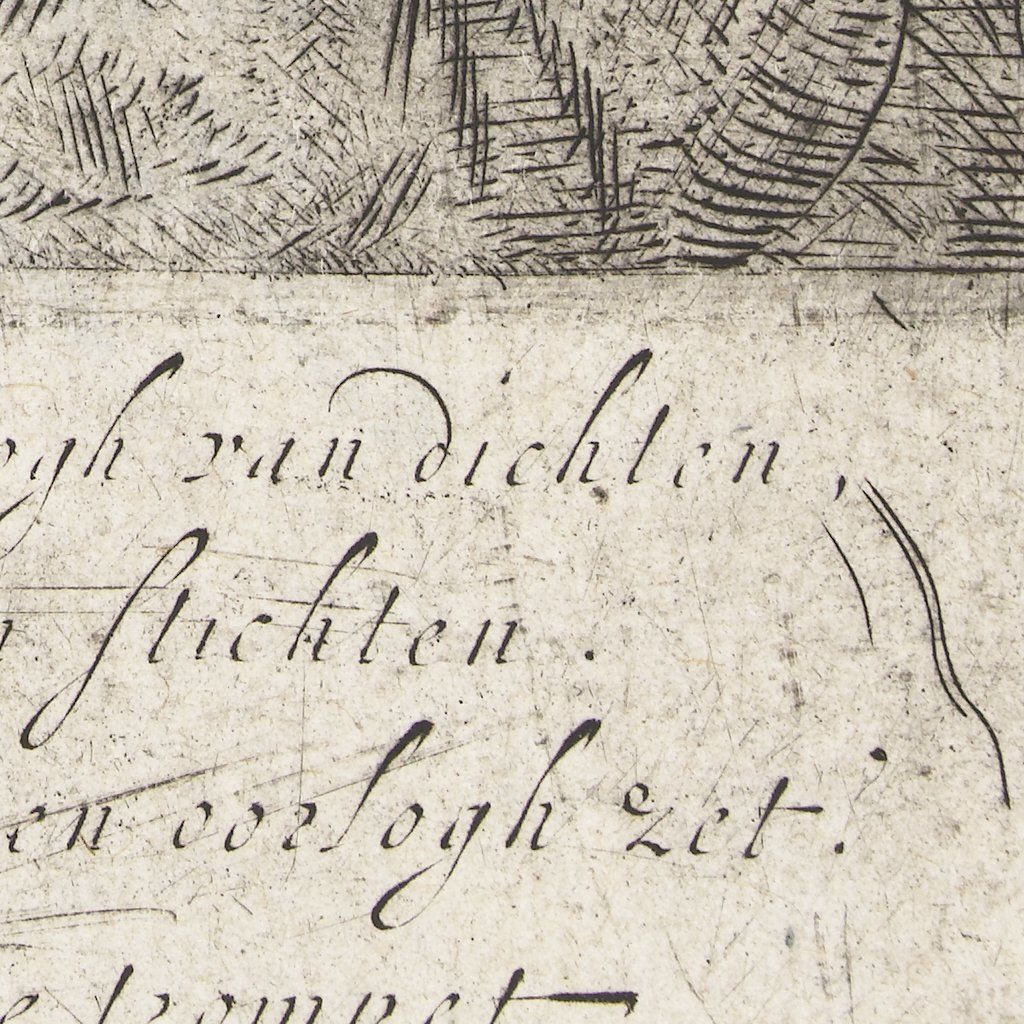 ogh van dichten,
ſtichten.
en oorlogh zet?
trompet